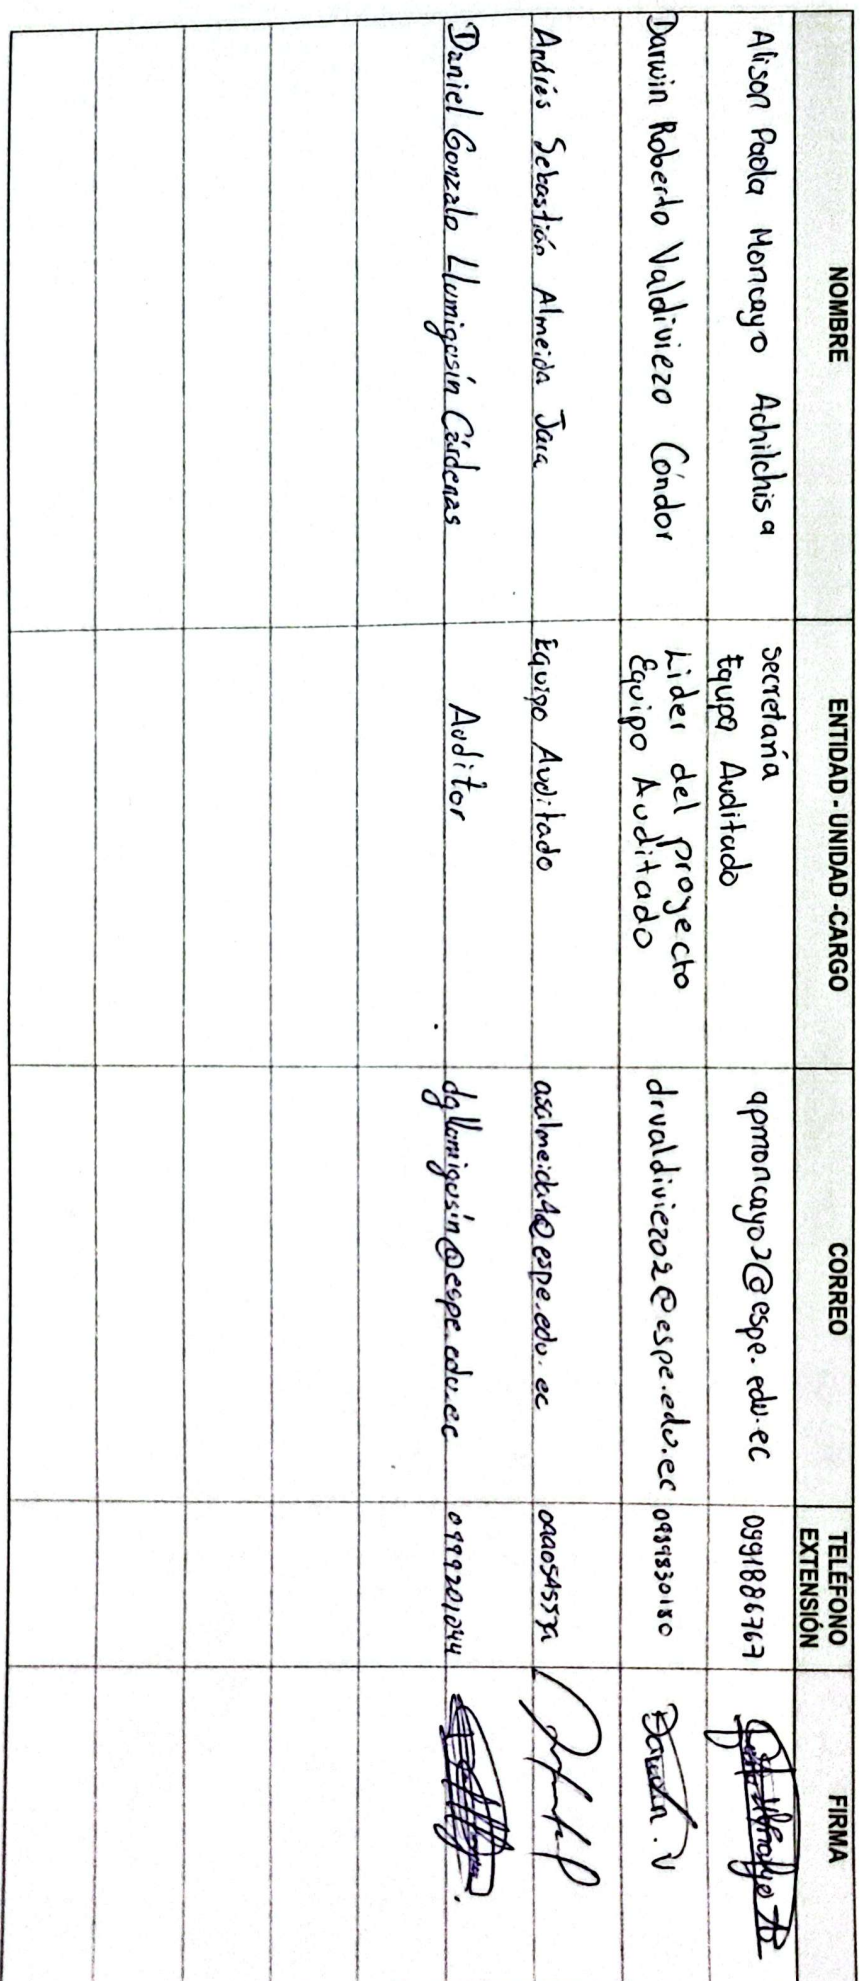 NOMBRE
ENTIDAD - UNIDAD -CARGO
CORREO
TELÉFONO
EXTENSIÓN
FIRMA
Alison Paola Moncayo Achilchisa
secretaría
Equpo Auditado
apmoncayo2@espe.edu.ec
0991886767
Darwin Roberto Valdiviezo Cóndor
Lider del proyecto
Equipo Auditado
drvaldiviezo2@espe.edu.ec
0989830180
Darwin.V
Andrés Sebastián Almeida Jara
Equipo Auditado
asalmeida4@espe.edu.ec
Daniel Gonzalo Llumigusín Cárdenas
Auditor
dgllumigusin@espe.edu.ec
0999201044